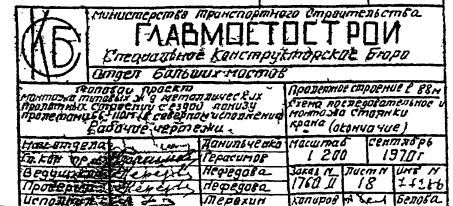 СКБ
Министерство Транспортного Строительства
ГЛАВМОСТОСТРОЙ
Специальное Конструкторское Бюро
Отдел Больших мостов
Типовой проект
монтажа типовых ж д металлических
пролетных строений с ездой понизу
пролетами 66-110м (в северном исполнении)
Рабочие чертежи.
Пролетное строение ℓ 88м
Схема последовательное и
монтажа стоянки
крана (окончание)
Нач. отдела Данильченко Масштаб сентябрь
Гл. кон Герасимов 1 200 1970г
Ведущий Нефедова Заказ N Лист N Инв N
Проверил Нефедова 1760 II 18
Исполнил Терехин копиров Белова